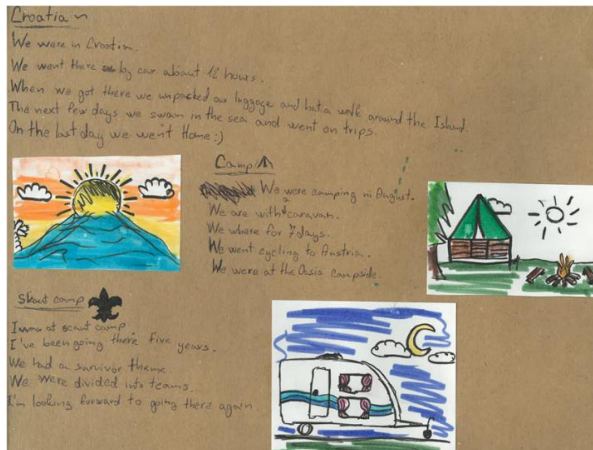 Croatia ~
We were in Croatia.
We went there by car about 12 hours.
When we got there we unpacked our luggage and had a walk around the Island
The next few days we swam in the sea and went on trips.
On the last day we went Home:)
Camp
We were camping in August.
We are with a caravan.
We where for 7 days.
We went cycling to Austria.
We were at the Oasis campside.
Skout camp
I was at scout camp
I've been going there five years.
We had an survivor theme
We were divided into teams.
I'm looking forward to going there again